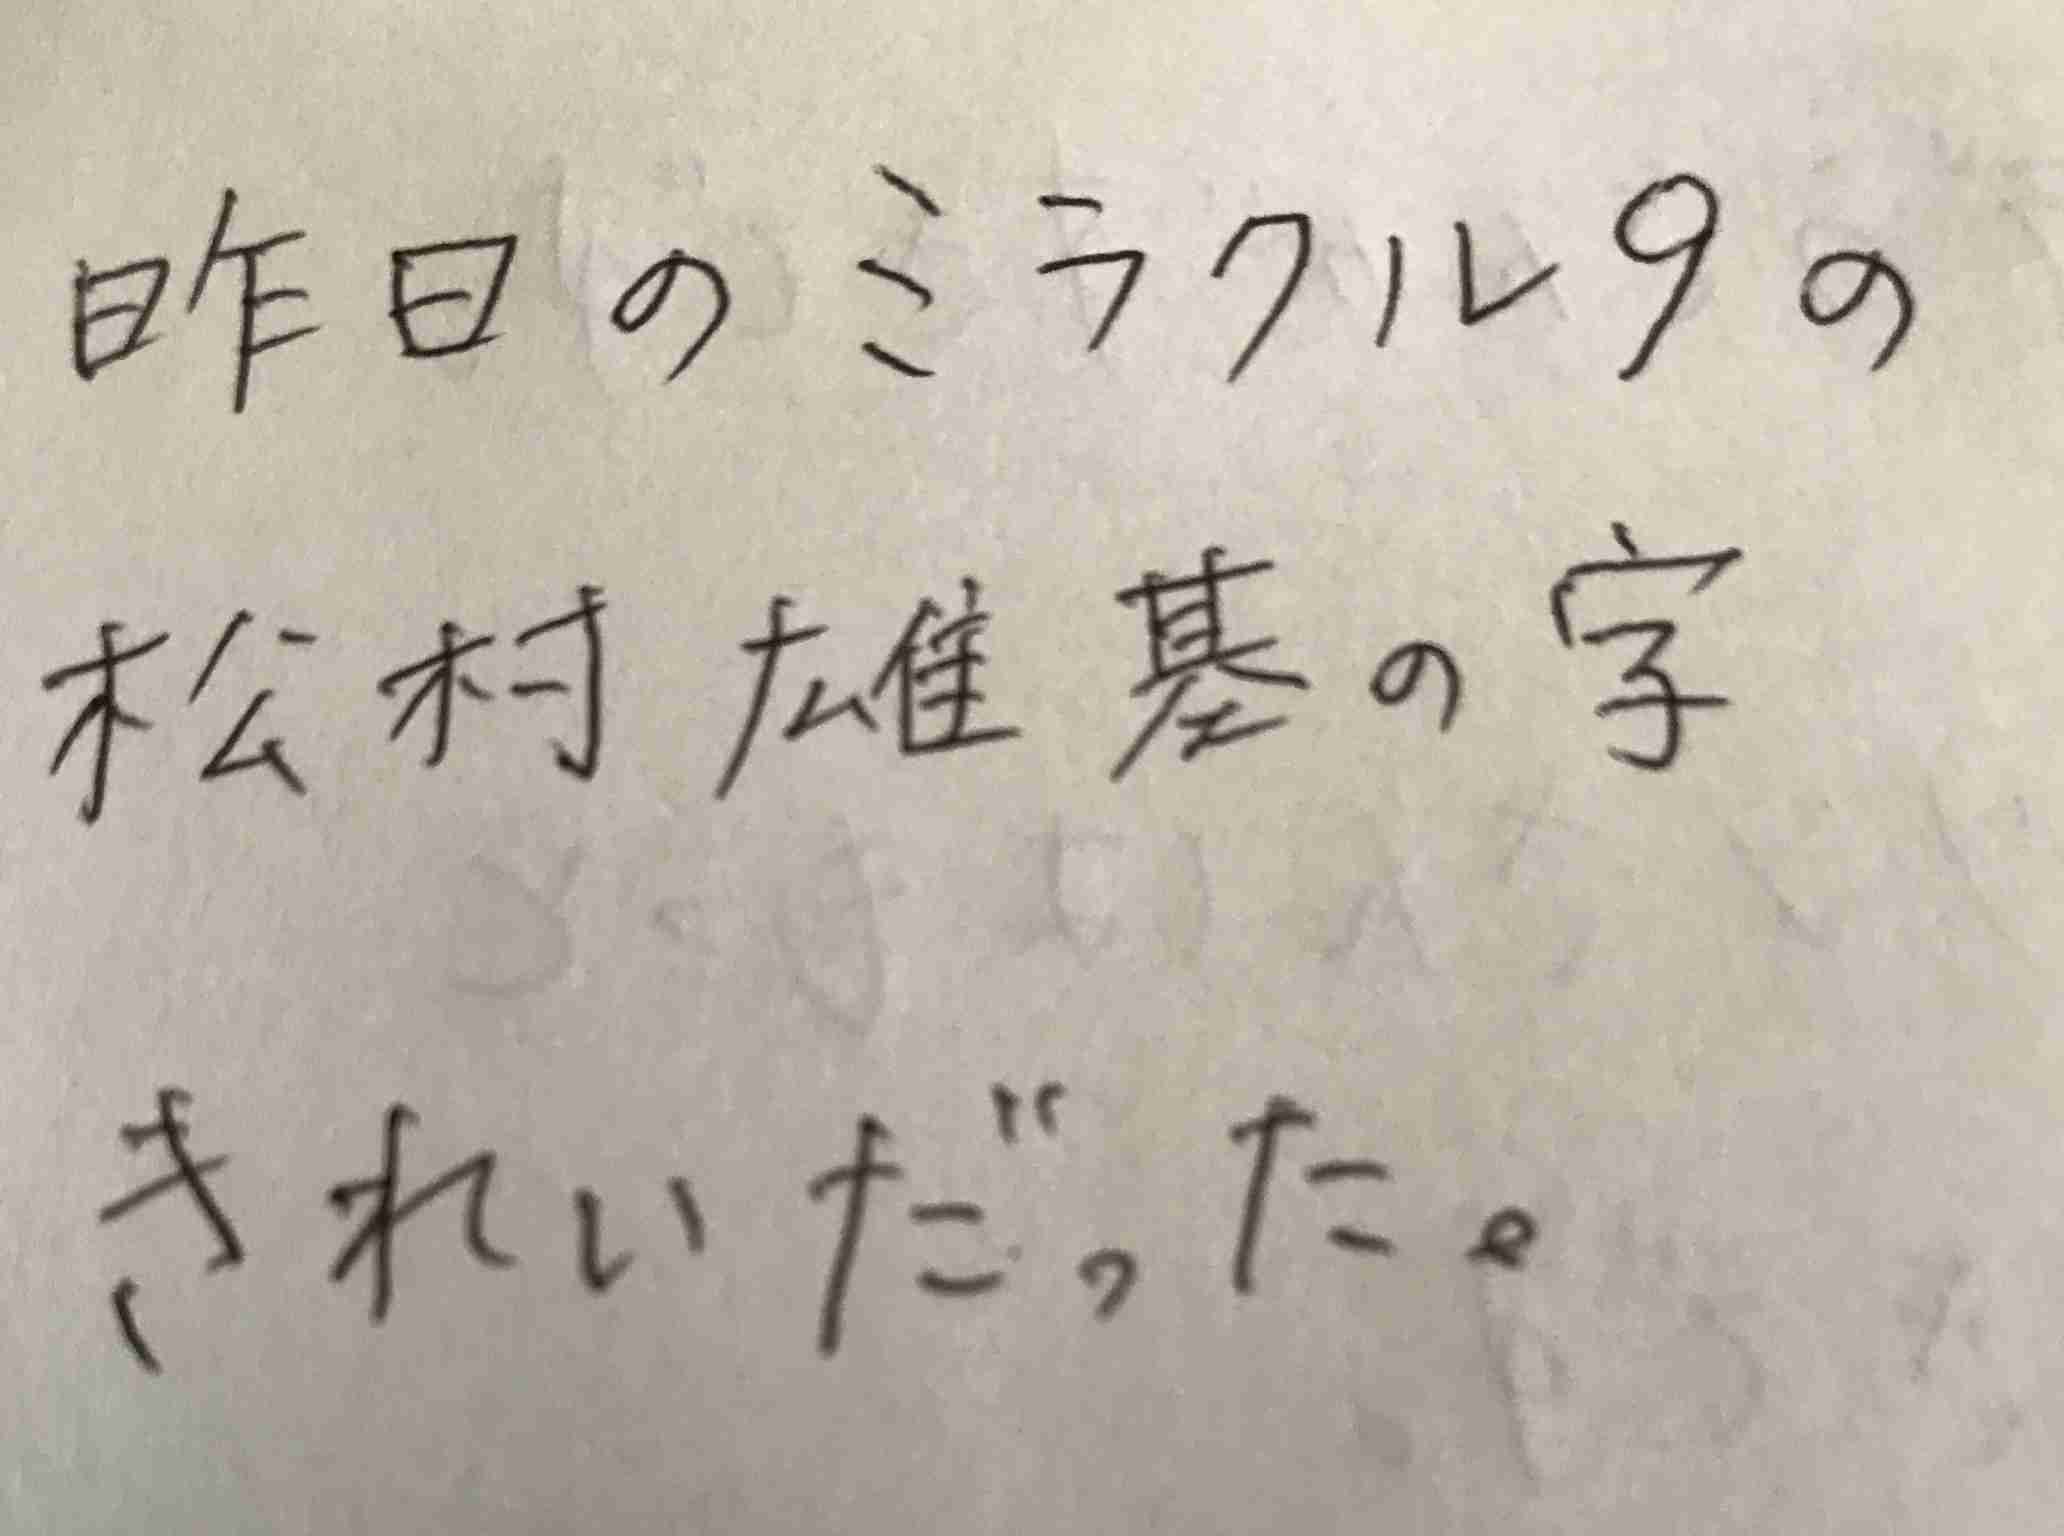 昨日のミラクル9の
松村雄基の字
きれいだった。